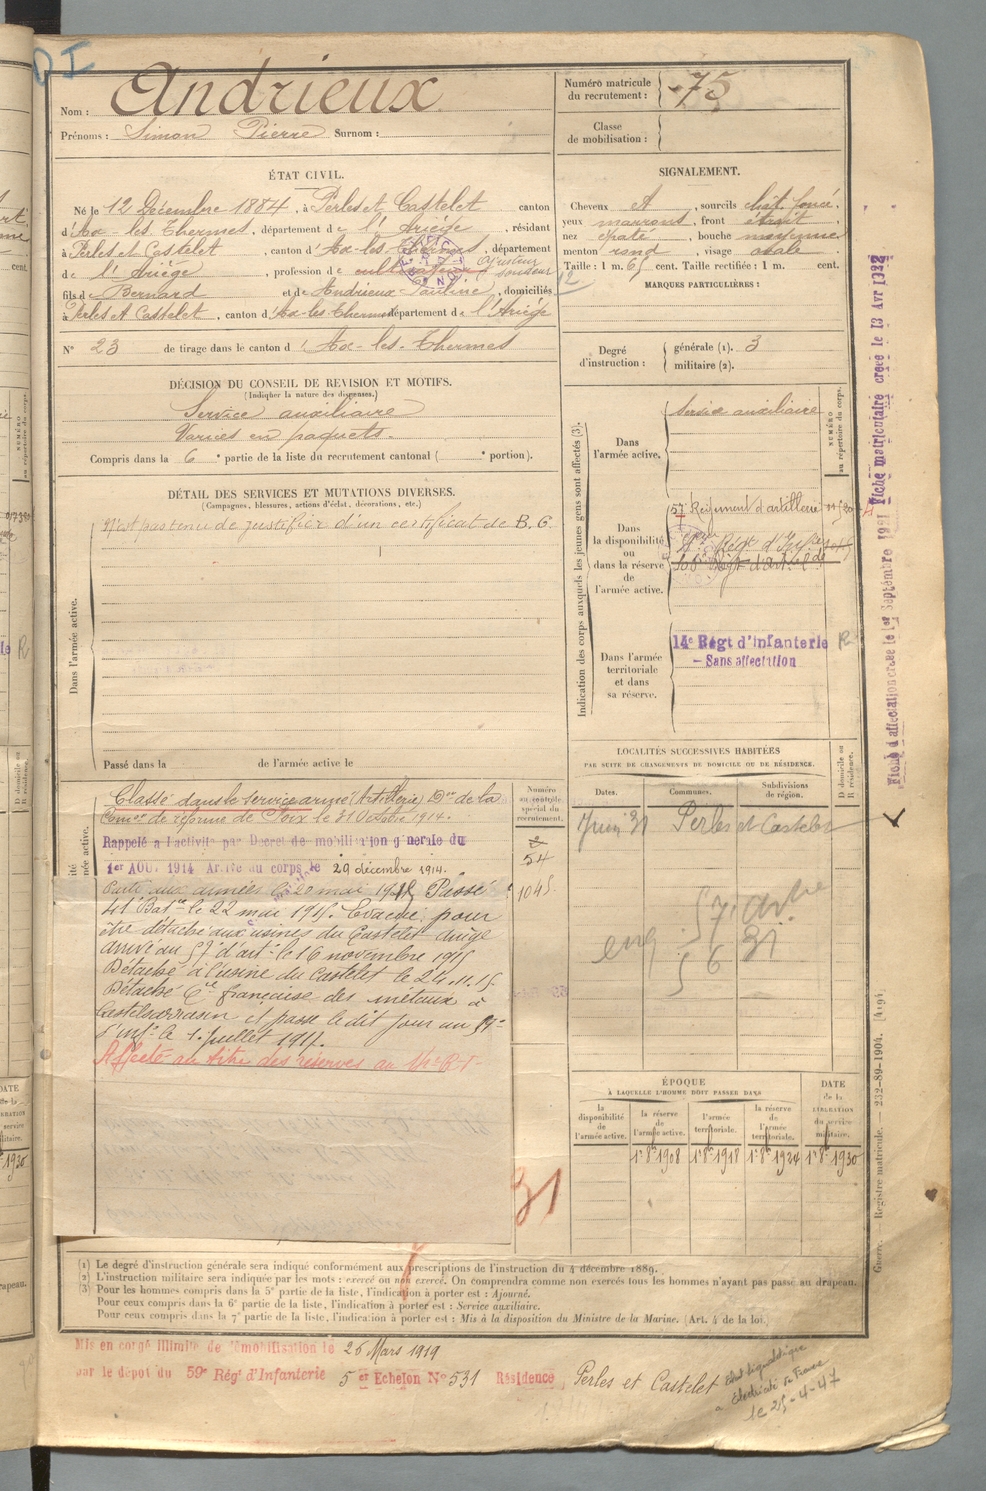 Nom : Andrieux
Prénoms : Simon Pierre Surnom :
Numéro matricule du recrutement : 75
Classe de mobilisation :
ÉTAT CIVIL.
Né le 12 Décembre 1884, à Perles et Castelet canton
d'Ax-les-Thermes, département de l'Ariège, résidant
à Perles et Castelet, canton d'Ax-les-Thermes, département
de l'Ariège, profession de cultivateur Ajusteur
fils de Bernard et de Andrieux Pauline, domiciliés
à Perles et Castelet, canton d'Ax-les-Thermes département de l'Ariège
N° 23 de tirage dans le canton d'Ax-les-Thermes
SIGNALEMENT.
Cheveux A, sourcils chât. foncé,
yeux marrons, front étroit,
nez épaté, bouche moyenne
menton rond, visage ovale
Taille : 1 m. 65 cent. Taille rectifiée : 1 m. cent.
MARQUES PARTICULIÈRES :
Degré d'instruction : générale (1). 3
militaire (2).
DÉCISION DU CONSEIL DE REVISION ET MOTIFS.
(Indiquer la nature des dispenses.)
Service auxiliaire
Varices en paquets.
Compris dans la 6e partie de la liste du recrutement cantonal ( e portion).
DÉTAIL DES SERVICES ET MUTATIONS DIVERSES.
(Campagnes, blessures, actions d'éclat, décorations, etc.)
Dans l'armée active.
N'est pas tenu de justifier d'un certificat de B. C.
Passé dans la de l'armée active le
Indication des corps auxquels les jeunes gens sont affectés (3).
NUMÉRO au répertoire du corps.
Dans l'armée active.
Service auxiliaire
Dans la disponibilité ou dans la réserve de l'armée active.
57 Régiment d'artillerie
Dans l'armée territoriale et dans sa réserve.
14e Régt d'Infanterie R
— Sans affectation
LOCALITÉS SUCCESSIVES HABITÉES
PAR SUITE DE CHANGEMENTS DE DOMICILE OU DE RÉSIDENCE.
Dates. Communes. Subdivisions de région. D domicile ou R résidence.
Juin 31 Perles et Castelet
Numéro au contrôle spécial du recrutement.
54
1045
Classé dans le service armé (Artillerie) Don de la
Comon de réforme de Foix le 31 Octobre 1914.
Rappelé à l'activité par Décret de mobilisation générale du
1er AOUT 1914 Arrivé au corps le 29 décembre 1914.
Parti aux armées le 20 mai 1915 Passé
41e Batie le 22 mai 1915. Evacué pour
être détaché aux usines du Castelet Ariège
arrivé au 57e d'artie le 16 novembre 1915
Détaché à l'usine du Castelet le 24.11.15.
Détaché Cie française des métaux à
Castelsarrasin et passe le dit jour au 59e
d'infie le 1er juillet 1917.
Affecté au titre des réserves au 14e R.I.
31
ÉPOQUE
À LAQUELLE L'HOMME DOIT PASSER DANS
DATE de la LIBÉRATION du service militaire.
la disponibilité de l'armée active. la réserve de l'armée active. l'armée territoriale. la réserve de l'armée territoriale.
1er 8bre 1908 1er 8bre 1918 1er 8bre 1924 1er 8bre 1930
(1) Le degré d'instruction générale sera indiqué conformément aux prescriptions de l'instruction du 4 décembre 1889.
(2) L'instruction militaire sera indiquée par les mots : exercé ou non exercé. On comprendra comme non exercés tous les hommes n'ayant pas passé au drapeau.
(3) Pour les hommes compris dans la 5e partie de la liste, l'indication à porter est : Ajourné.
Pour ceux compris dans la 6e partie de la liste, l'indication à porter est : Service auxiliaire.
Pour ceux compris dans la 7e partie de la liste, l'indication à porter est : Mis à la disposition du Ministre de la Marine. (Art. 4 de la loi.)
Mis en congé illimité de démobilisation le 26 Mars 1919
par le dépôt du 59e Régt d'Infanterie 5er Echelon N° 531 Résidence Perles et Castelet
Electricité de France
le 25-4-47
Fiche d'affectation créée le 1er Septembre 1931 Fiche matriculaire créée le 13 Avr 1932
Guerre. Registre matricule. — 232-89-1904. [419]